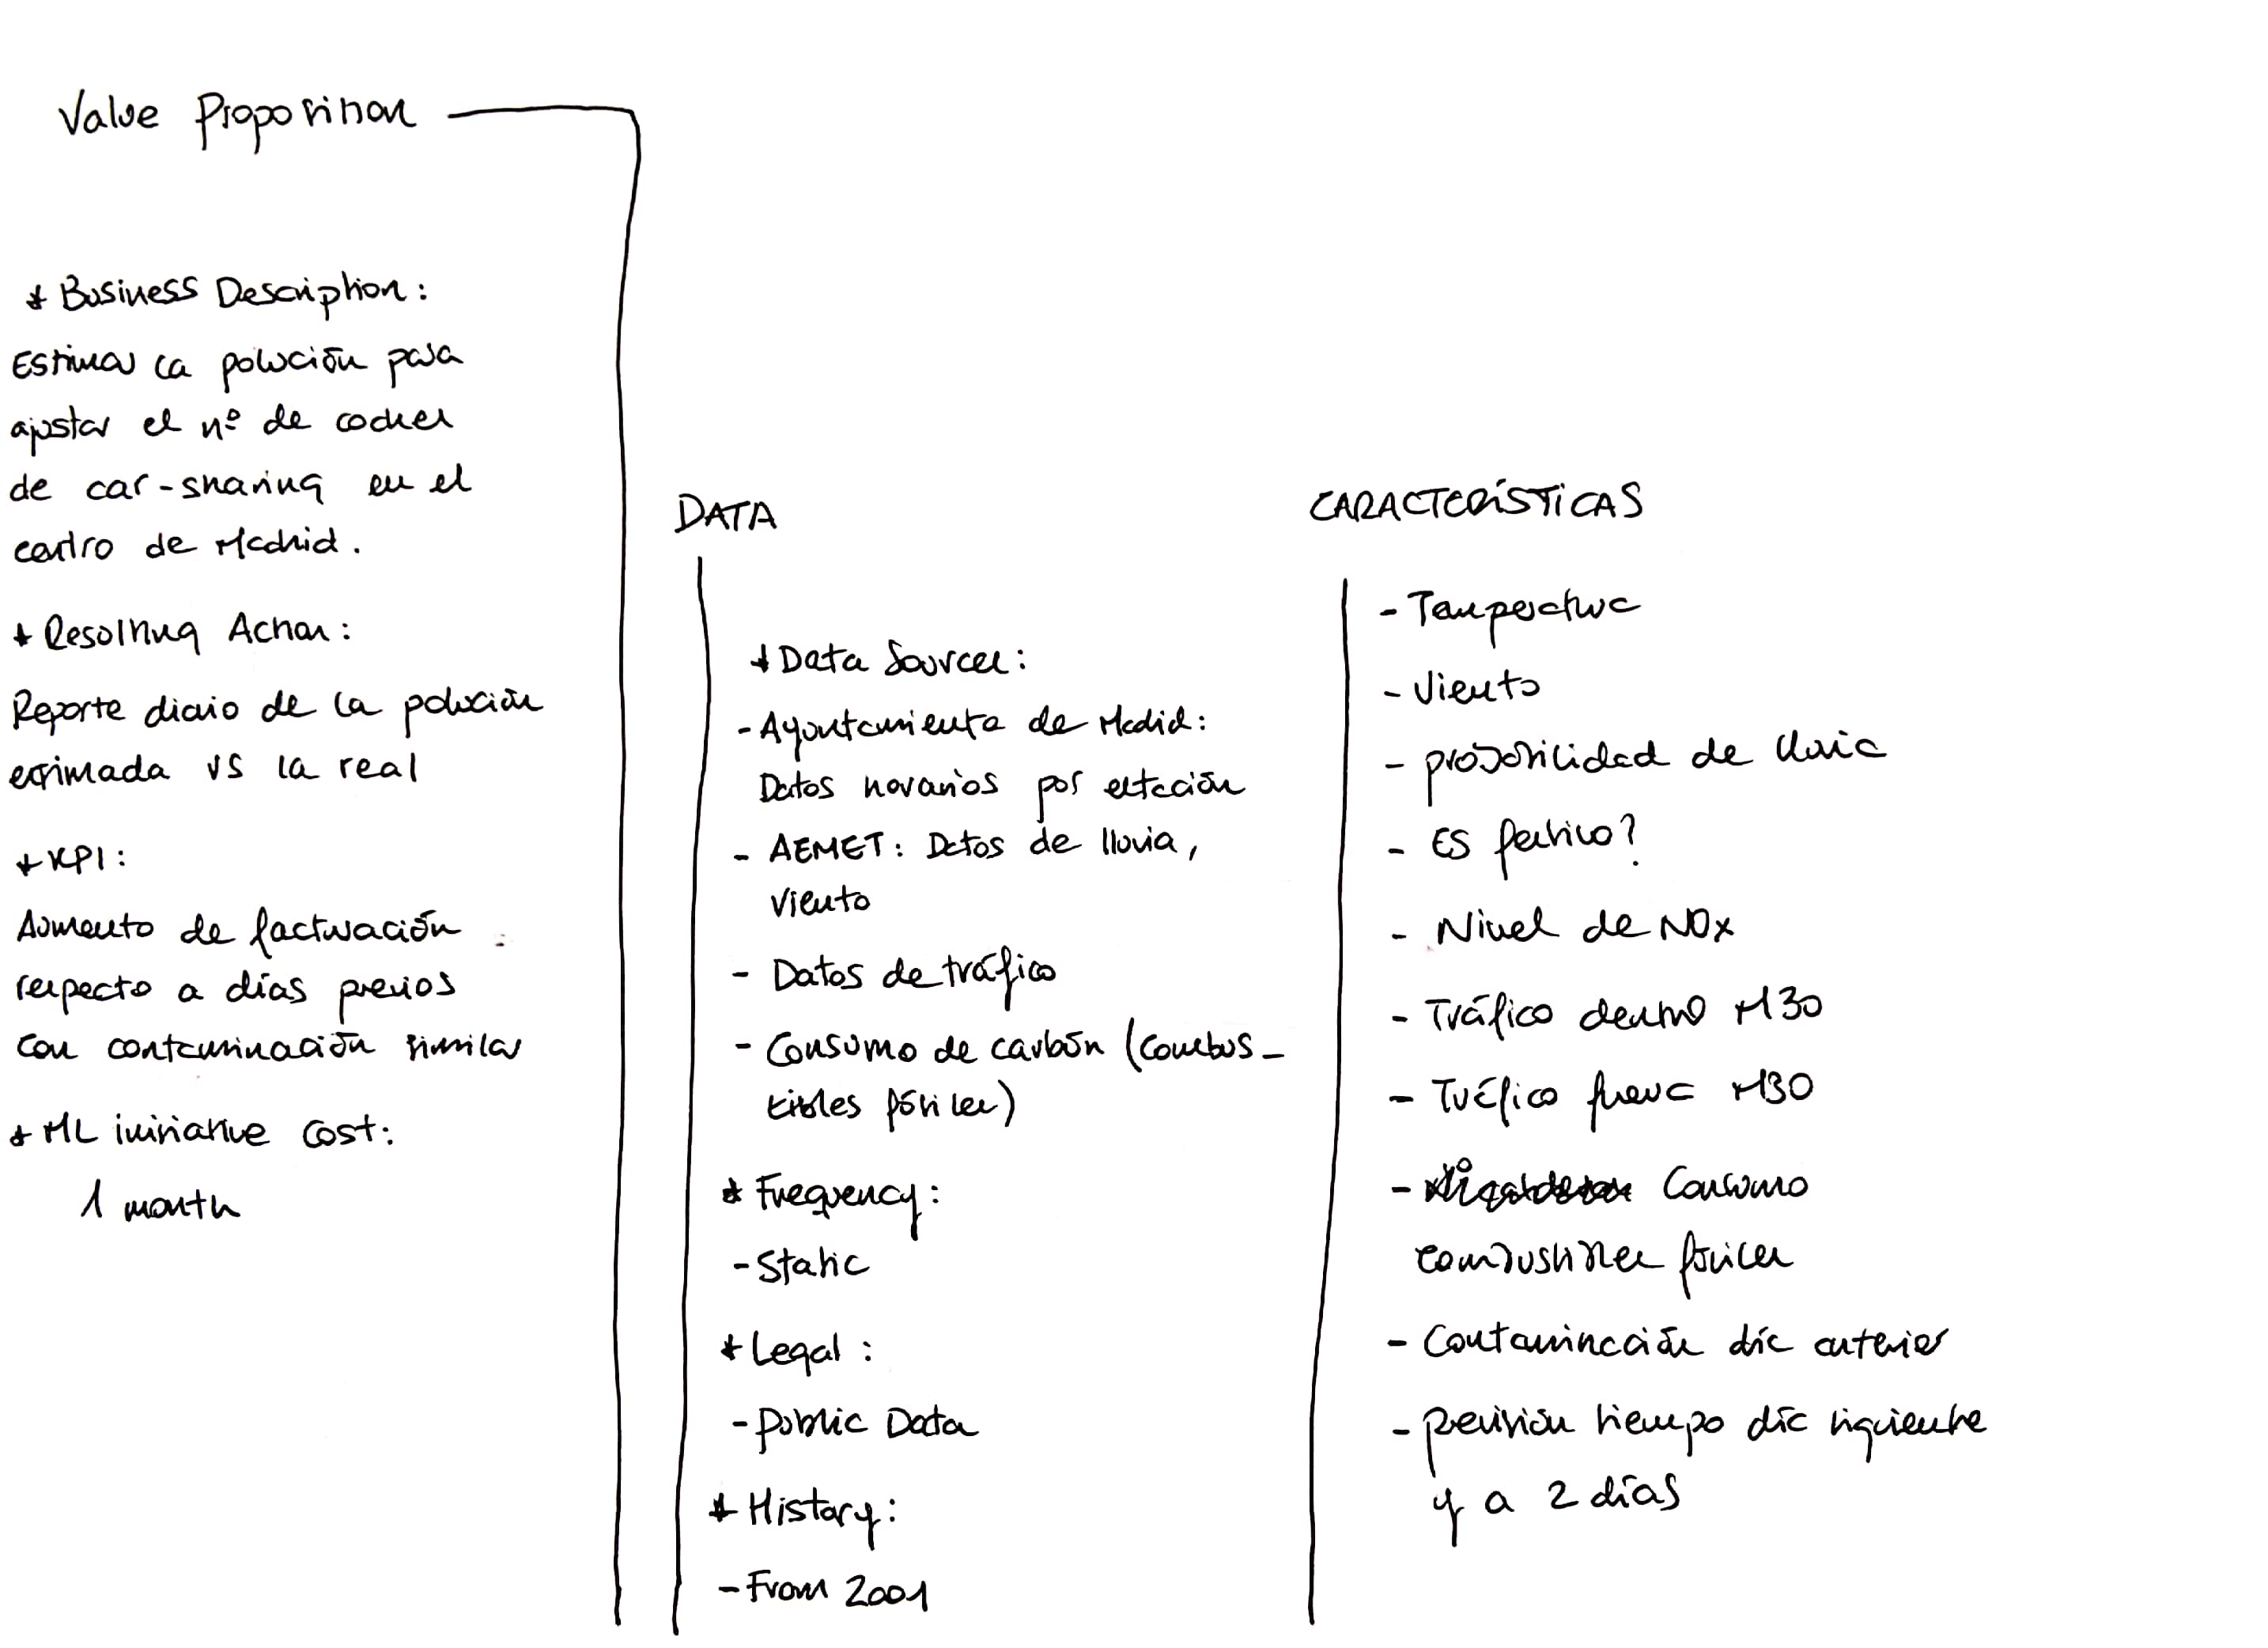 Value Proposition
* Business Description:
Estimar la polución para
ajustar el nº de coches
de car-sharing en el
centro de Madrid.
* Resulting Action:
Reporte diario de la polución
estimada vs la real
* KPI:
Aumento de facturación
respecto a días previos
con contaminación similar
* ML initiative Cost:
1 month
DATA
* Data Sources:
- Ayuntamiento de Madrid:
Datos horarios por estación
- AEMET: Datos de lluvia,
viento
- Datos de tráfico
- Consumo de carbón (combus-
tibles fósiles)
* Frequency:
- Static
* Legal:
- Public Data
* History:
- From 2001
CARACTERÍSTICAS
- Temperatura
- Viento
- probabilidad de lluvia
- ES festivo?
- Nivel de NOx
- Tráfico dentro M30
- Tráfico fuera M30
- Consumo
combustibles fósiles
- Contaminación día anterior
- previsión tiempo día siguiente
y a 2 días